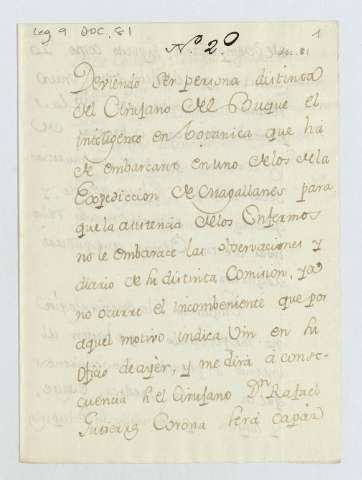 Leg 9 DOC. 81
Nº 20
1
doc. 81
Deviendo ser persona distinta
del Cirujano del Buque el
inteligente en botanica que ha
de embarcarse en uno de los de la
Expedicion de Magallanes para
que la asistencia de los Enfermos
no le embarace las observaciones y
diario de su distinta Comision, ya
no ocurre el incombeniente que por
aquel motivo indica Vm en su
Oficio de ayer, y me dirá á conse-
cuencia si el Cirujano Dn Rafael
Corona será capaz